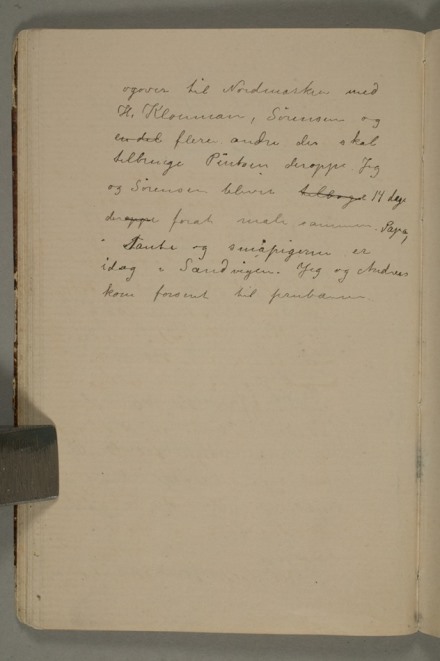 ogover til Nordmarken med
H. Klouman, Sørensen og
en del flere andre der skal
tilbringe Pintsen deroppe. Jeg
og Sørensen bliver tilbage 14 dage
deroppe forat male sammen. Papa,
Tante og småpigerne er
idag i Sandvigen. Jeg og Andreas
kom forsent til jernbanen